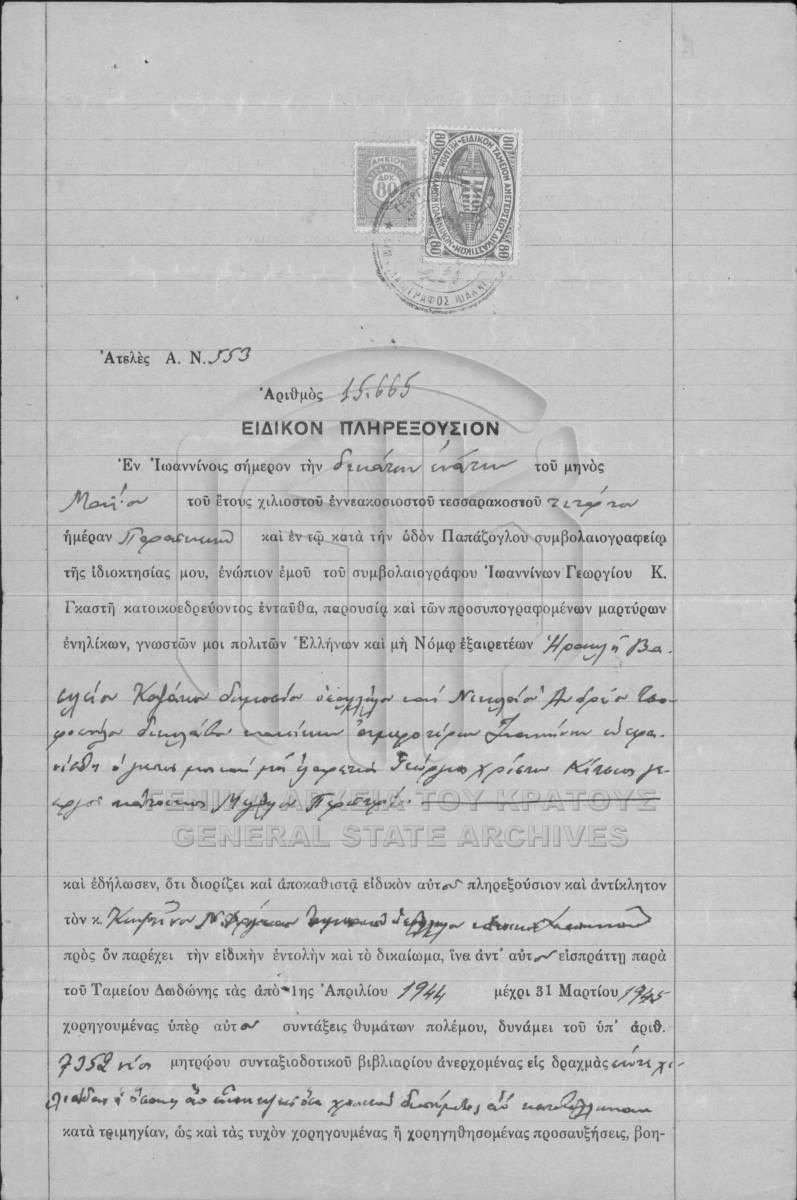 ΤΑΜΕΙΟΝ
ΔΡΧ.
80
80 ΕΙΔΙΚΟΝ ΤΑΜΕΙΟΝ ΑΝΕΓΕΡΣΕΩΣ ΔΙΚΑΣΤΙΚΩΝ 80
80 80
Ἀτελὲς Α. Ν. 553
Ἀριθμὸς 15.665
ΕΙΔΙΚΟΝ ΠΛΗΡΕΞΟΥΣΙΟΝ
Ἐν Ἰωαννίνοις σήμερον τὴν δεκάτην ἐνάτην τοῦ μηνὸς
Μαΐου τοῦ ἔτους χιλιοστοῦ ἐννεακοσιοστοῦ τεσσαρακοστοῦ τετάρτου
ἡμέραν Παρασκευὴν καὶ ἐν τῷ κατὰ τὴν ὁδὸν Παπάζογλου συμβολαιογραφείῳ
τῆς ἰδιοκτησίας μου, ἐνώπιον ἐμοῦ τοῦ συμβολαιογράφου Ἰωαννίνων Γεωργίου Κ.
Γκαστῆ κατοικοεδρεύοντος ἐνταῦθα, παρουσίᾳ καὶ τῶν προσυπογραφομένων μαρτύρων
ἐνηλίκων, γνωστῶν μοι πολιτῶν Ἑλλήνων καὶ μὴ Νόμῳ ἐξαιρετέων Ἡρακλῆ Βα
σιλείου δημοσίου ὑπαλλήλου καὶ Νικολάου Ἀνδρέου
κατοίκων ἀμφοτέρων Ἰωαννίνων ἐνεφα
νίσθη ὁ γνωστός μοι καὶ μὴ ἐξαιρετέος Γεώργιος Χρίστου Κίτσιος γε
ωργὸς κάτοικος
ΓΕΝΙΚΑ ΑΡΧΕΙΑ ΤΟΥ ΚΡΑΤΟΥΣ
GENERAL STATE ARCHIVES
καὶ ἐδήλωσεν, ὅτι διορίζει καὶ ἀποκαθιστᾷ εἰδικὸν αὐτοῦ πληρεξούσιον καὶ ἀντίκλητον
τὸν κ. Ν.
πρὸς ὃν παρέχει τὴν εἰδικὴν ἐντολὴν καὶ τὸ δικαίωμα, ἵνα ἀντ' αὐτοῦ εἰσπράττῃ παρὰ
τοῦ Ταμείου Δωδώνης τὰς ἀπὸ 1ης Ἀπριλίου 1944 μέχρι 31 Μαρτίου 1945
χορηγουμένας ὑπὲρ αὐτοῦ συντάξεις θυμάτων πολέμου, δυνάμει τοῦ ὑπ' ἀριθ.
7352 μητρῴου συνταξιοδοτικοῦ βιβλιαρίου ἀνερχομένας εἰς δραχμὰς πέντε χι
λιάδας
κατὰ τριμηγίαν, ὡς καὶ τὰς τυχὸν χορηγουμένας ἢ χορηγηθησομένας προσαυξήσεις, βοη-